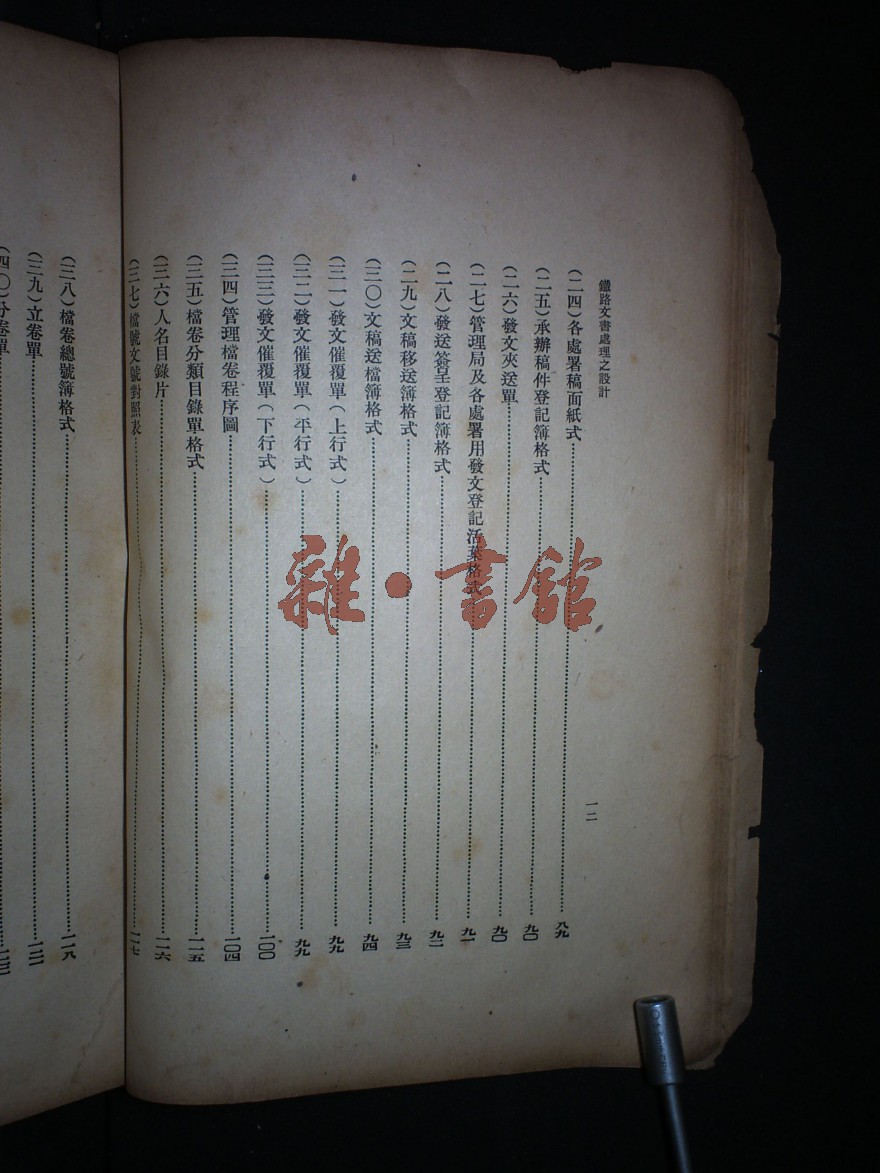 鐵路文書處理之設計
一二
(二四)各處署稿面紙式⋯⋯八九
(二五)承辦稿件登記簿格式⋯⋯九〇
(二六)發文夾送單⋯⋯九〇
(二七)管理局及各處署用發文登記活葉格式⋯⋯九一
(二八)發送簽呈登記簿格式⋯⋯九二
(二九)文稿移送簿格式⋯⋯九三
(三〇)文稿送檔簿格式⋯⋯九四
(三一)發文催覆單(上行式)⋯⋯九九
(三二)發文催覆單(平行式)⋯⋯九九
(三三)發文催覆單(下行式)⋯⋯一〇〇
(三四)管理檔卷程序圖⋯⋯一〇四
(三五)檔卷分類目錄單格式⋯⋯一一五
(三六)人名目錄片⋯⋯一一六
(三七)檔號文號對照表⋯⋯一一七
(三八)檔卷總號簿格式⋯⋯一一八
(三九)立卷單⋯⋯
(四〇)分卷單⋯⋯
雜·書館